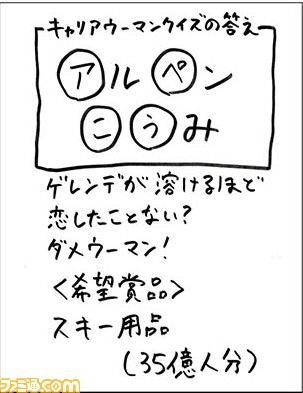 キャリアウーマンクイズの答え
アルペン
こうみ
ゲレンデが溶けるほど
恋したことない?
ダメウーマン!
<希望賞品>
スキー用品
(35億人分)
ファミ通.com